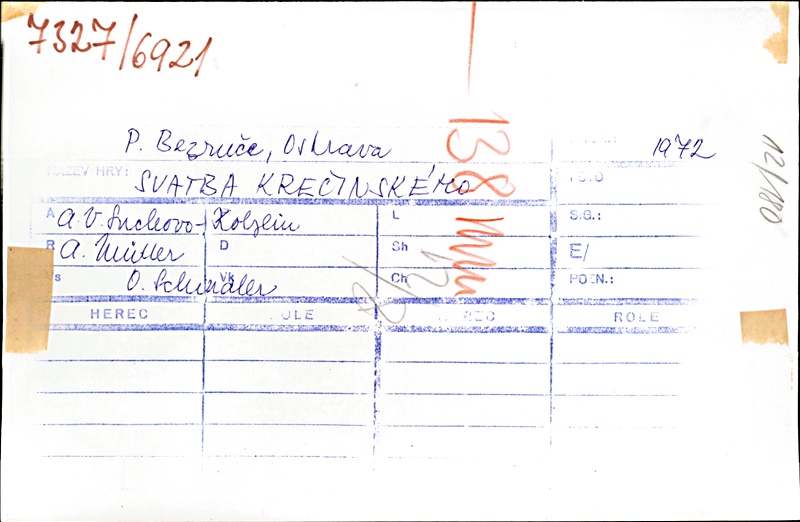 7327/6921
P. Bezruče, Ostrava 1972
NÁZEV HRY: SVATBA KREČINSKÉHO
A A. V. Suchovo-Kobylin L S.G.:
R A. Müller D Sh E/
s O. Schindler Vk Ch POZN.:
HEREC ROLE HEREC ROLE
138 mm
12/180